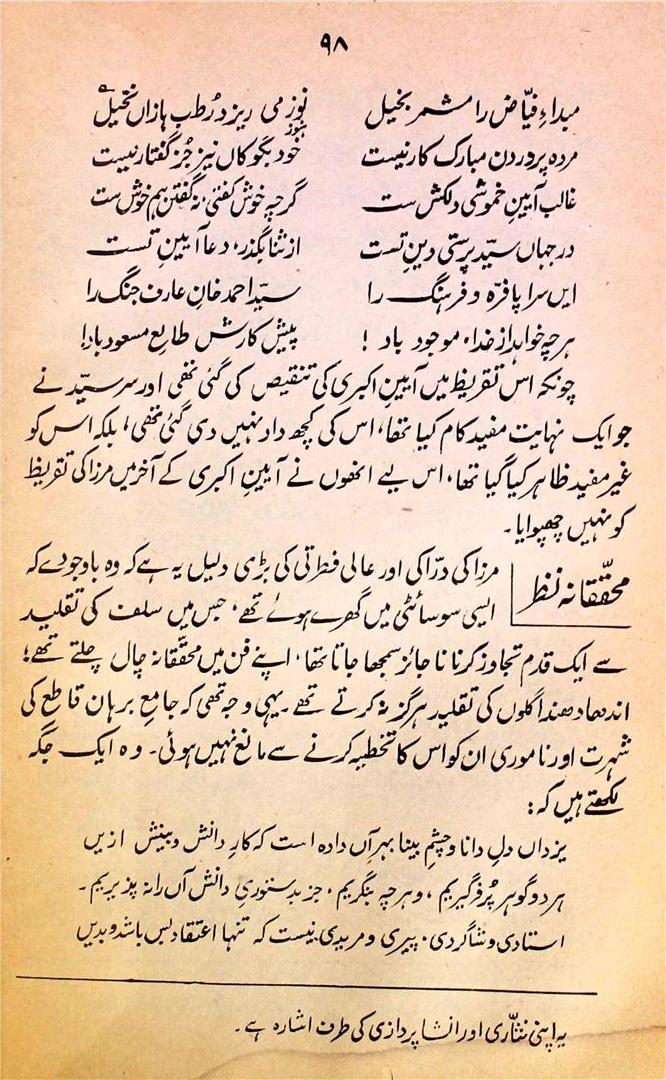 ۹۸
مبداءِ فیّاض را مشمر بخیل نوز می ریزد رُطب ہا زاں نخیلؔ
ہنوز
مردہ پروردن مبارک کار نیست خود بگو کاں نیز جُز گفتار نیست
غالب آیینِ خموشی دلکش ست گرچہ خوش گفتی، نہ گفتن ہم خوش ست
در جہاں سیّد پرستی دینِ تست از ثنا بگذر، دعا آیینِ تست
ایں سراپا فرّہ و فرہنگ را سیّد احمد خانِ عارف جنگ را
ہرچہ خواہد از خدا، موجود باد ! پیش کارش طالعِ مسعود باد!
چونکہ اس تقریظ میں آیینِ اکبری کی تنقیص کی گئی تھی اور سرسیّد نے
جو ایک نہایت مفید کام کیا تھا، اس کی کچھ داد نہیں دی گئی تھی، بلکہ اس کو
غیر مفید ظاہر کیا گیا تھا، اس لیے انھوں نے آیینِ اکبری کے آخر میں مرزا کی تقریظ
کو نہیں چھپوایا۔
محقّقانہ نظر
مرزا کی درّاکی اور عالی فطرتی کی بڑی دلیل یہ ہے کہ وہ باوجودے کہ
ایسی سوسائٹی میں گھرے ہوئے تھے، جس میں سلف کی تقلید
سے ایک قدم تجاوز کرنا ناجائز سمجھا جاتا تھا، اپنے فن میں محقّقانہ چال چلتے تھے؛
اندھا دھند اگلوں کی تقلید ہرگز نہ کرتے تھے۔ یہی وجہ تھی کہ جامعِ برہان قاطع کی
شہرت اور ناموری ان کو اس کا تخطیہ کرنے سے مانع نہیں ہوئی۔ وہ ایک جگہ
لکھتے ہیں کہ:
یزداں دلِ دانا و چشمِ بینا بہرِ آں دادہ است کہ کارِ دانش و بینش ازیں
ہر دو گوہر پُر فرگیریم، و ہرچہ بنگریم، جز بدستوریِ دانش آں را نہ پذیریم۔
استادی و شاگردی، پیری و مریدی نیست کہ تنہا اعتقاد بس باشد و بدیں
یہ اپنی نثّاری اور انشا پردازی کی طرف اشارہ ہے۔